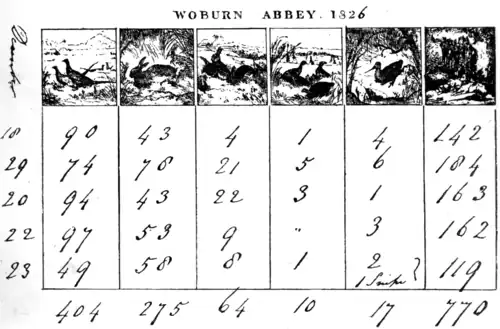 WOBURN ABBEY. 1826
December
18 90 43 4 1 4 142
29 74 78 21 5 6 184
20 94 43 22 3 1 163
22 97 53 9 " 3 162
23 49 58 8 1 2 119
1 Snipe }
404 275 64 10 17 770